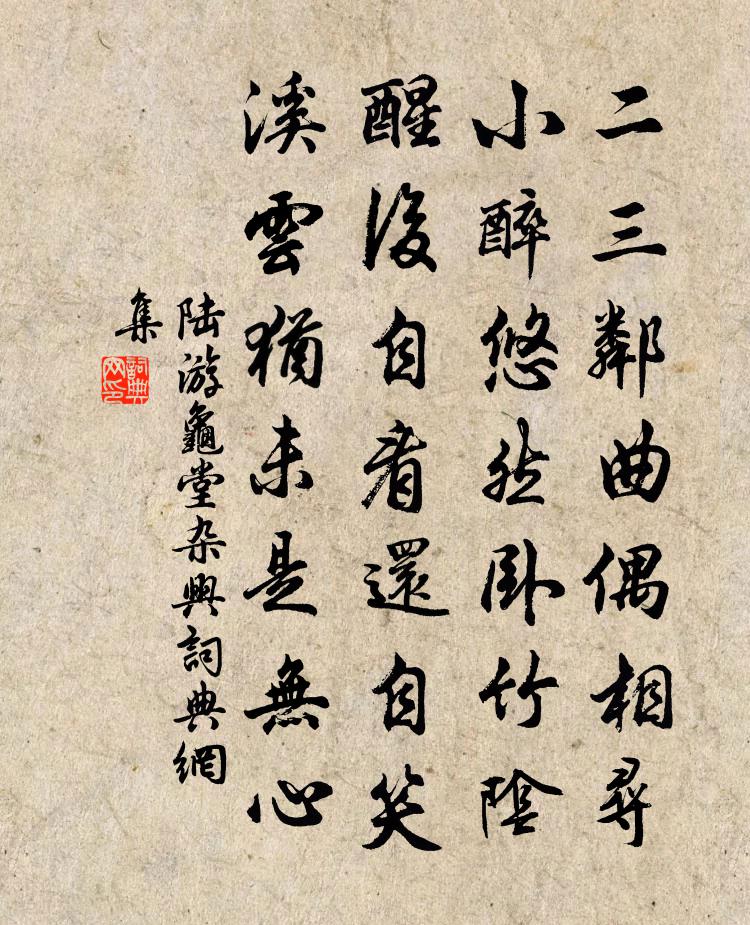 二三鄰曲偶相尋
小醉悠然臥竹陰
醒後自看還自笑
溪雲猶未是無心
陸游龜堂杂興詞典網
集
詞典
网印